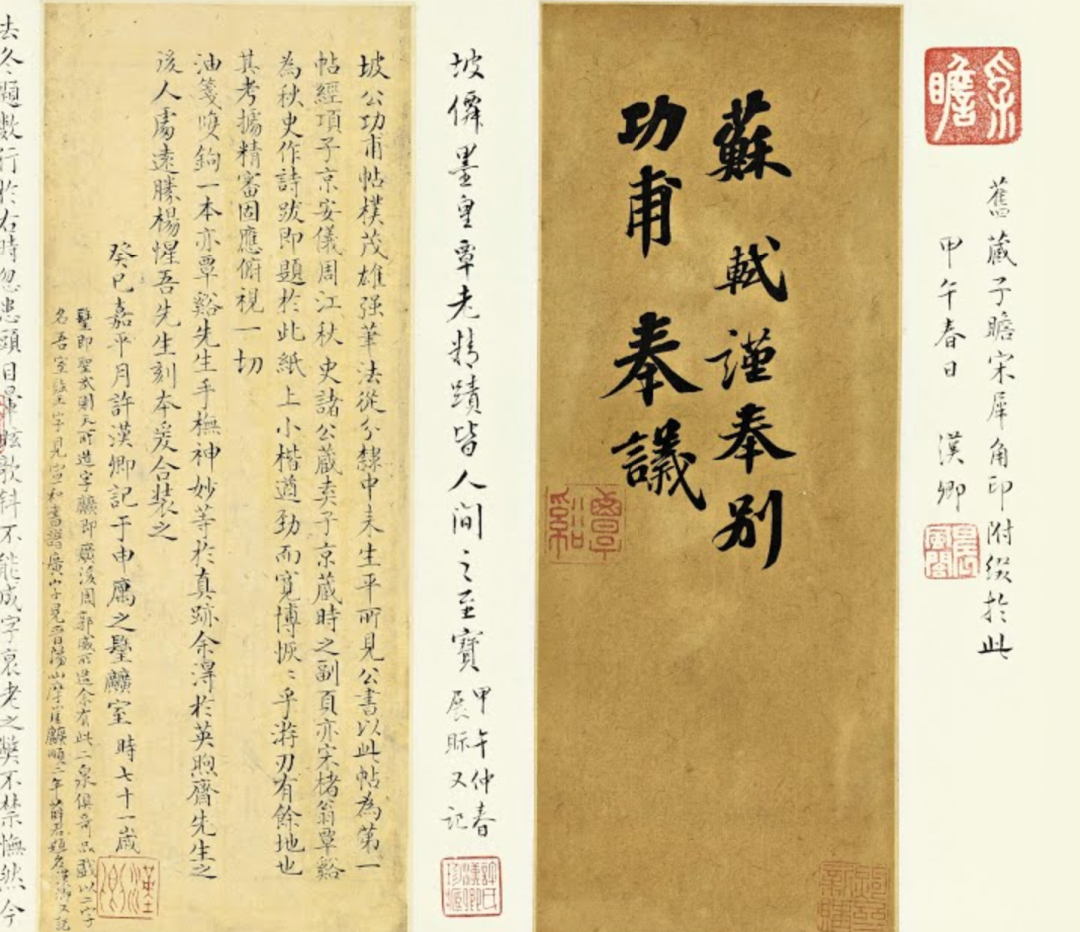 子瞻
舊藏子瞻宋犀角印附綴於此
甲午春日 漢卿
蘇軾謹奉別
功甫奉議
坡僊墨皇覃老精蹟皆人間之至寶
甲午仲春
展眎又記
許氏漢卿珍藏
坡公功甫帖樸茂雄强筆法從分隸中来生平所見公書以此帖為第一
帖經項子京安儀周江秋史諸公藏弆子京藏時之副頁亦宋楮翁覃谿
為秋史作詩跋即題於此紙上小楷遒勁而寬博恢〻乎游刃有餘地也
其考據精審固應俯視一切
油箋雙鉤一本亦覃谿先生手橅神妙等於真跡余淂於英煦齋先生之
後人處遠勝楊惺吾先生刻本爰合裝之
癸巳嘉平月許漢卿記于申寓之璧㕓室 時七十一歲
漢卿
去冬題數行於右時忽患頭目暈眩欹斜不能成字衰老之獘不禁憮然今